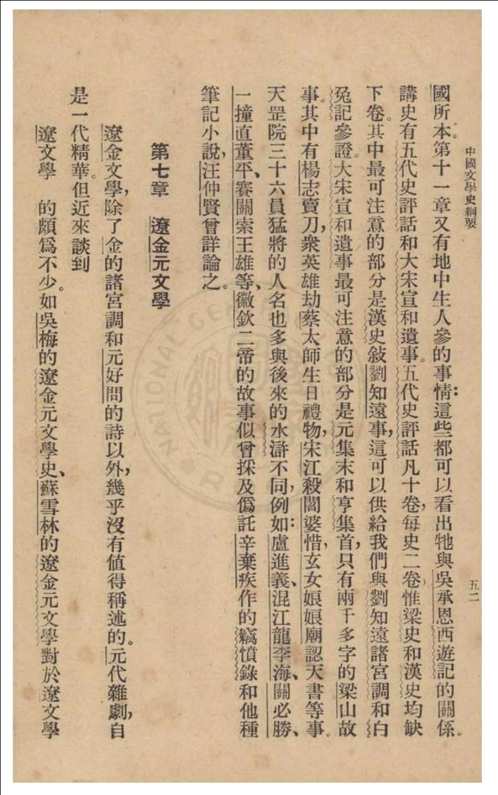 中國文學史綱要
五二
國所本。第十一章又有地中生人參的事情；這些都可以看出牠與吳承恩西遊記的關係。
講史有五代史評話和大宋宣和遺事。五代史評話凡十卷，每史二卷，惟梁史和漢史均缺
下卷。其中最可注意的部分是漢史敍劉知遠事，這可以供給我們與劉知遠諸宮調和白
兔記參證。大宋宣和遺事最可注意的部分是元集末和亨集首，只有兩千多字的梁山故
事。其中有楊志賣刀，衆英雄劫蔡太師生日禮物，宋江殺閻婆惜，玄女娘娘廟認天書等事。
天罡院三十六員猛將的人名也多與後來的水滸不同，例如：盧進義、混江龍李海、關必勝、
一撞直董平、賽關索王雄等。徽欽二帝的故事似曾採及僞託辛棄疾作的竊憤錄和他種
筆記小說，汪仲賢曾詳論之。
第七章　遼金元文學
遼金文學，除了金的諸宮調和元好問的詩以外，幾乎沒有值得稱述的。元代雜劇，自
是一代精華。但近來談到
遼文學　的頗爲不少。如吳梅的遼金元文學史、蘇雪林的遼金元文學對於遼文學